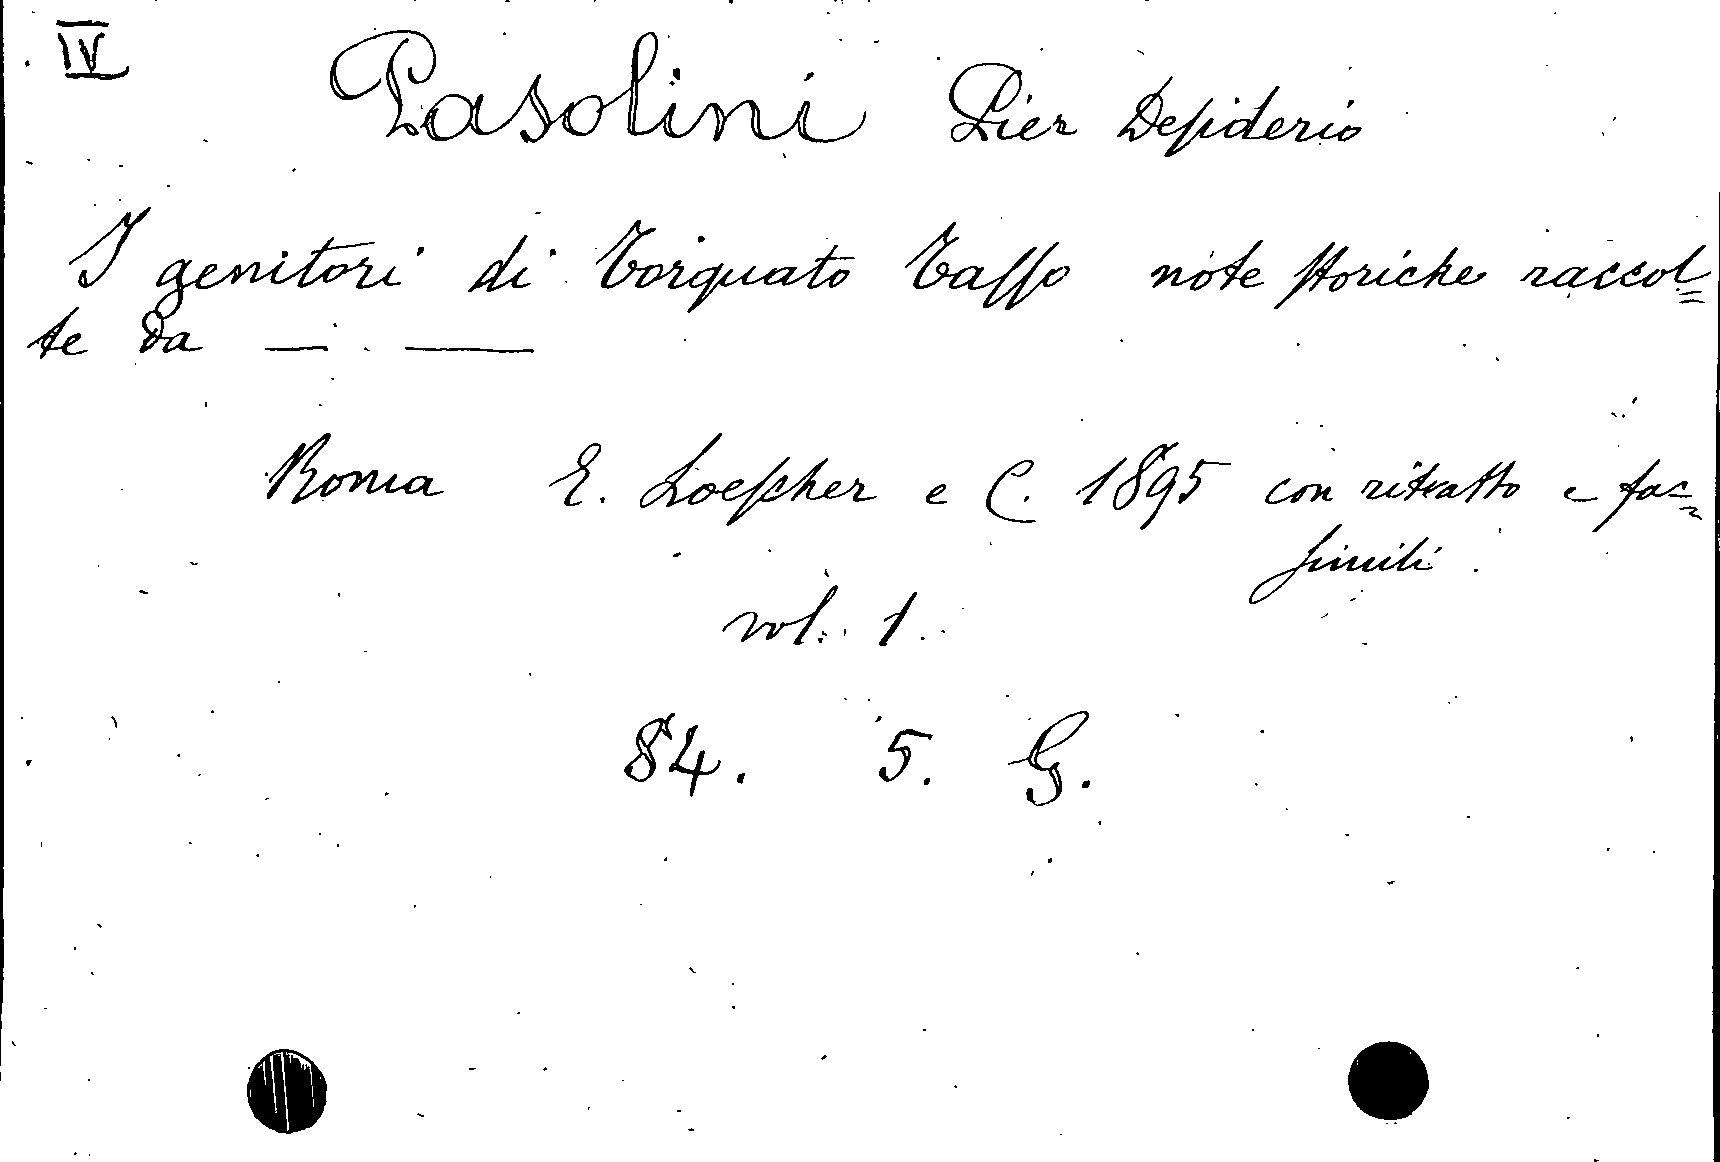 IV
Pasolini Pier Desiderio
I genitori di Torquato Tasso note storiche raccol=
te da — . —
Roma E. Loescher e C. 1895 con ritratto e fac=
simili.
vol. 1.
84. 5. G.